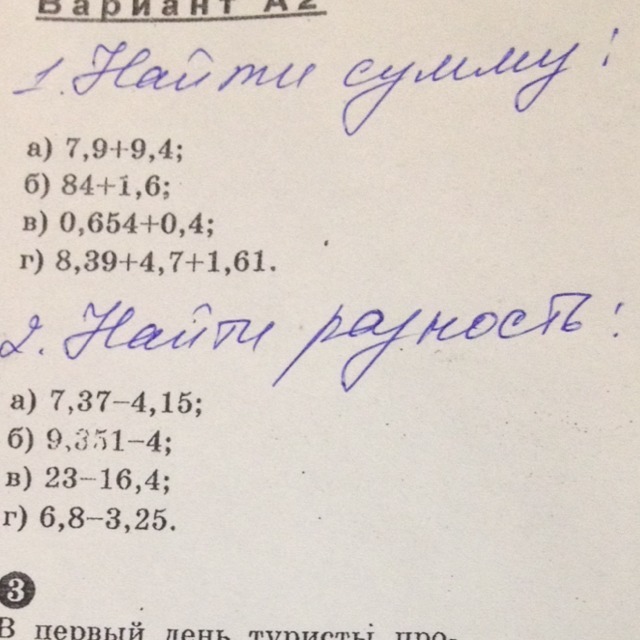 Вариант А2
1. Найти сумму:
а) 7,9+9,4;
б) 84+1,6;
в) 0,654+0,4;
г) 8,39+4,7+1,61.
2. Найти разность:
а) 7,37−4,15;
б) 9,351−4;
в) 23−16,4;
г) 6,8−3,25.
3
В первый день туристы про-